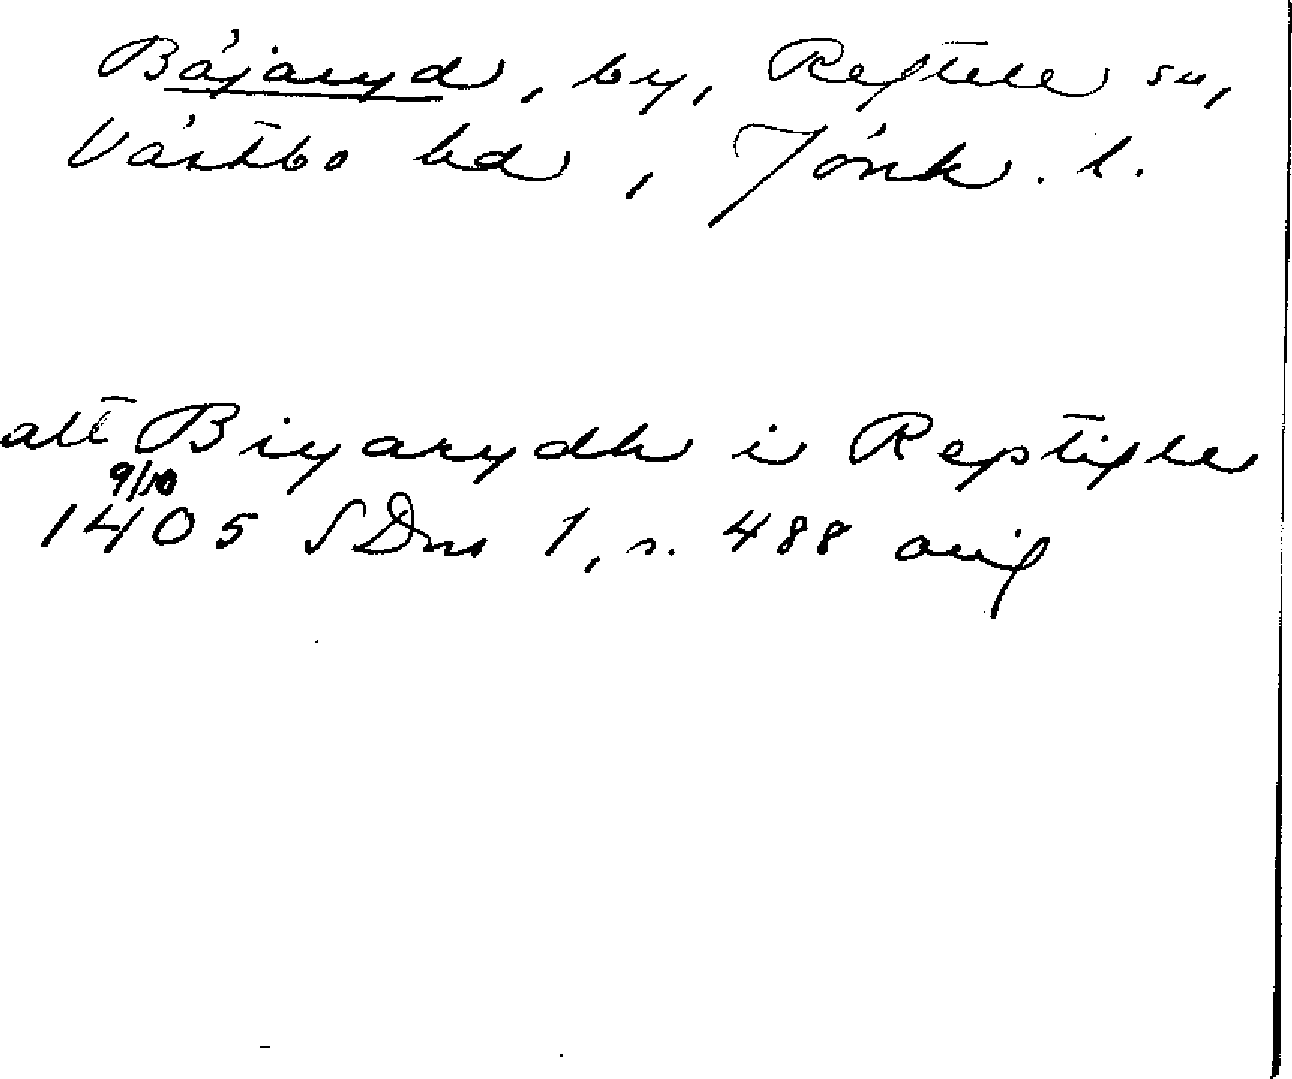 Bäjaryd, by, Reftele sn,
Västbo hd, Jönk. l.
att Biyarydh i Reptisle
9/10
1405 SDns 1, s. 488 orig